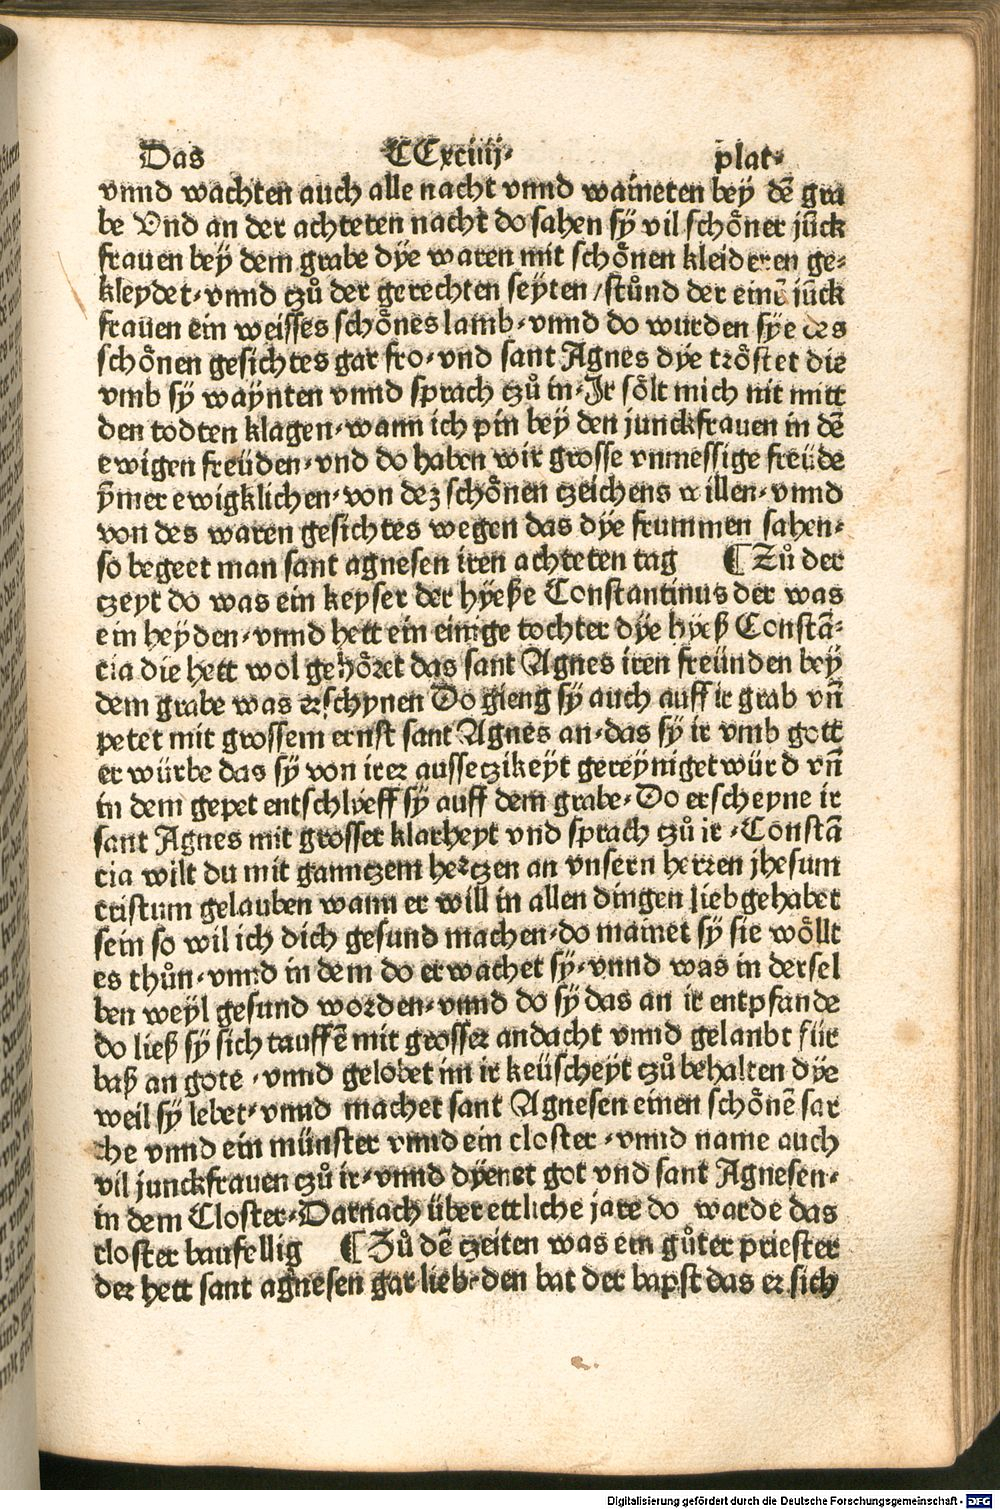 Das CCxciiij. plat.
vnnd wachten auch alle nacht vnnd waineten bey dē gra
be Vnd an der achteten nacht do sahen sÿ vil schoͤner jūck
frauen beÿ dem grabe dÿe waren mit schoͤnen kleideren ge⸗
kleydet. vnnd czuͦ der gerechten seÿten / stuͦnd der einē jūck
frauen ein weisses schoͤnes lamb. vnnd do wurden sÿe des
schoͤnen gesichtes gar fro. vnd sant Agnes dÿe troͤstet die
vmb sÿ waÿnten vnnd sprach czuͦ in. Ir soͤlt mich nit mitt
den todten klagen. wann ich pin beÿ den junckfrauen in dē
ewigen freüden. vnd do haben wir grosse vnmessige freüde
ÿmer ewigklichen. von dez schoͤnen czeichens willen. vnnd
von des waren gesichtes wegen das dÿe frummen sahen.
so begeet man sant agnesen iren achteten tag ¶ Zuͦ der
czeyt do was ein keyser der hÿeße Constantinus der was
ein heÿden. vnnd hett ein einige tochter dÿe hÿeß Constā⸗
cia die hett wol gehoͤret das sant Agnes iren freünden beÿ
dem grabe was erschynen Do gieng sÿ auch auff ir grab vn̄
petet mit grossem ernst sant Agnes an. das sÿ ir vmb gott
er würbe das sÿ von irer aussetzikeyt gereÿniget würd vn̄
in dem gepet entschlyeff sÿ auff dem grabe. Do erscheyne ir
sant Agnes mit grosser klarheyt vnd sprach czuͦ ir. Constā
cia wilt du mit gannczem herczen an vnsern herren jhesum
cristum gelauben wann er will in allen dingen lieb gehabet
sein so wil ich dich gesund machen. do mainet sÿ sie woͤllt
es thuͦn. vnnd in dem do erwachet sÿ. vnnd was in dersel
ben weÿl gesund worden. vnnd do sÿ das an ir entpfande
do ließ sÿ sich tauffē mit grosser andacht vnnd gelaubt für
baß an gote. vnnd gelobet im ir keüscheÿt czuͦ behalten dÿe
weil sÿ lebet. vnnd machet sant Agnesen einen schoͤnē sar
che vnnd ein münster vnnd ein closter. vnnd name auch
vil junckfrauen czuͦ ir. vnnd dÿenet got vnd sant Agnesen.
in dem Closter. Darnach über ettliche jare do warde das
closter baufellig ¶ Zuͦ dē czeiten was ein guͦter priester
der hett sant agnesen gar lieb. den bat der bapst das er sich
Digitalisierung gefördert durch die Deutsche Forschungsgemeinschaft - DFG